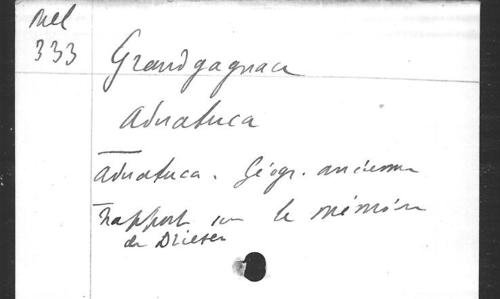 Mel
333
Grandgagnage
Aduatuca
Aduatuca. Géogr. ancienne
Rapport sur le mémoire
de Driesen